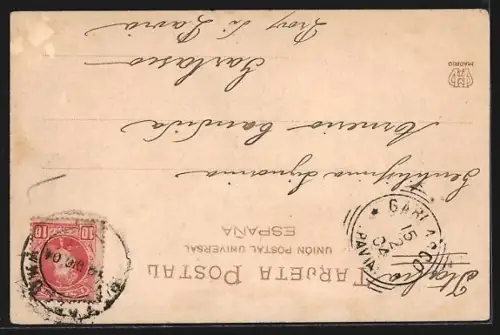 TARJETA POSTAL
UNIÓN POSTAL UNIVERSAL
ESPAÑA
Gentilissima Signorina
Candida
Garlasco
Prov. di Pavia
Italia
GARLASCO
15
2
04
PAVIA
10 10
04
MADRID